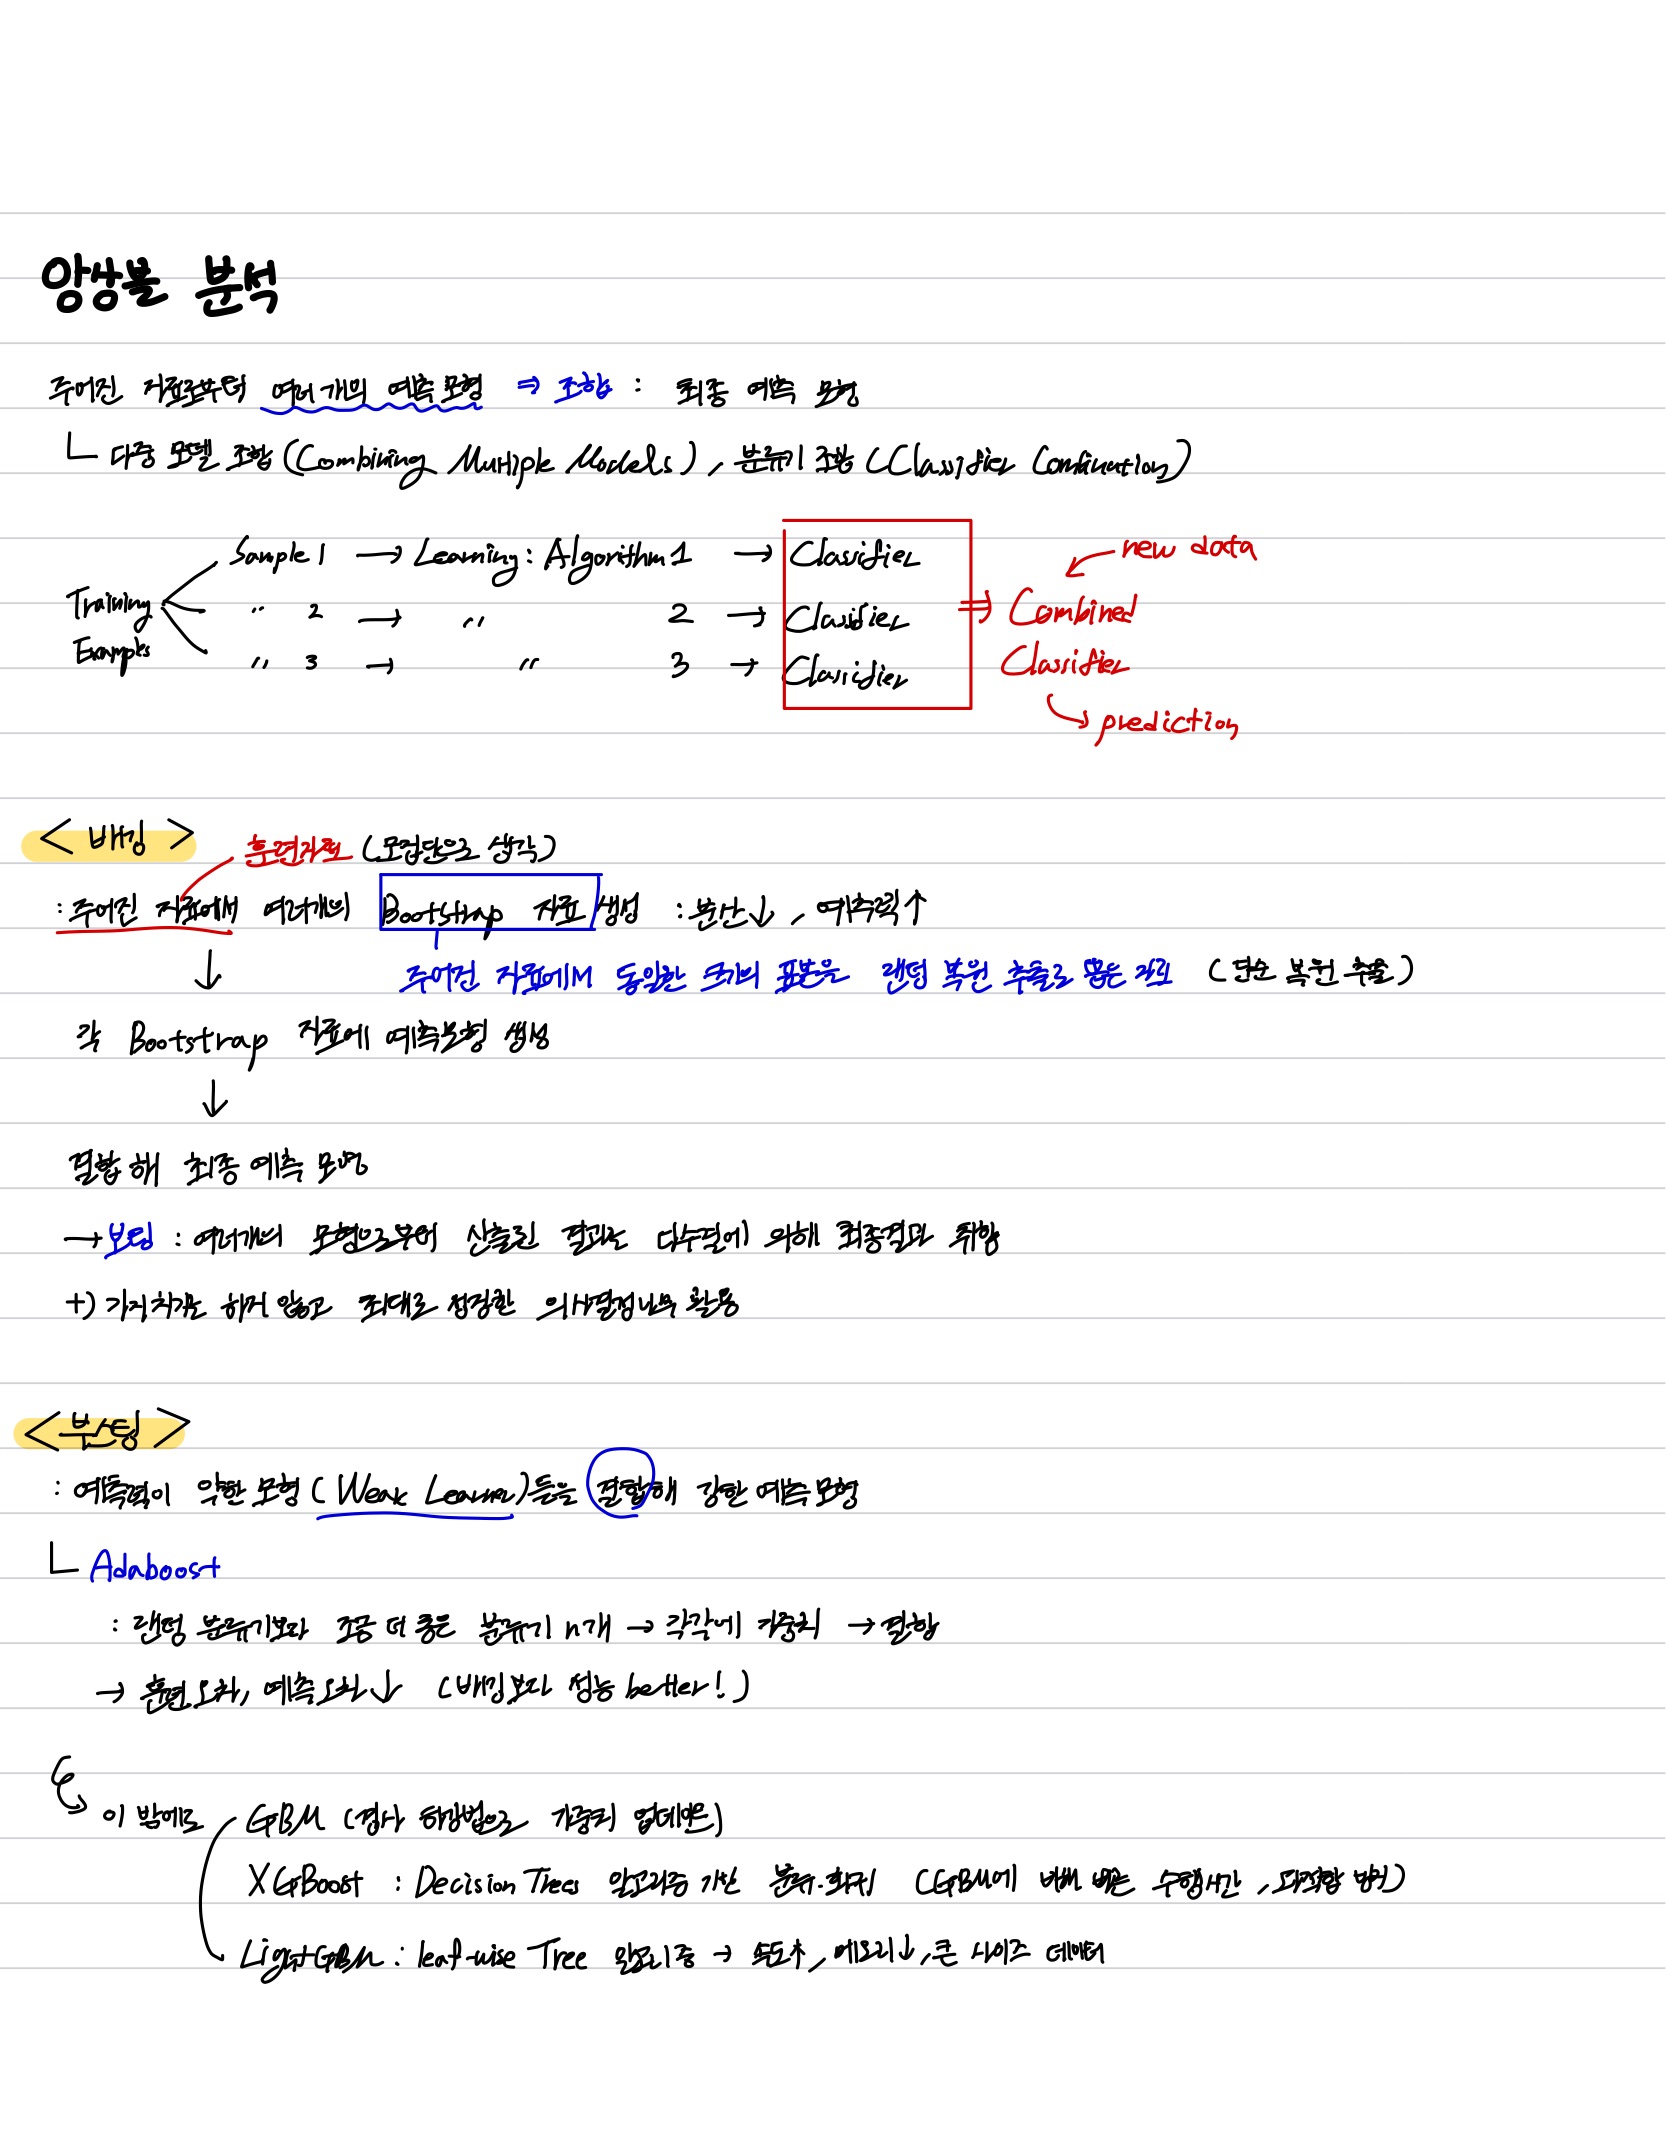 앙상블 분석
주어진 자료로부터 여러개의 예측모형 ⇒ 조합 : 최종 예측 모형
ㄴ 다중 모델 조합 (Combining Multiple Models), 분류기 조합 (Classifier Combination)
Training Examples
Sample 1 → Learning : Algorithm 1 → Classifier
〃 2 → 〃 2 → Classifier
〃 3 → 〃 3 → Classifier
⇒ Combined Classifier
new data
prediction
< 배깅 >
훈련자료 (모집단으로 생각)
: 주어진 자료에서 여러개의 Bootstrap 자료 생성 : 분산↓, 예측력↑
↓ 주어진 자료에서 동일한 크기의 표본을 랜덤 복원 추출로 뽑은 자료 (단순 복원 추출)
각 Bootstrap 자료에 예측모형 생성
↓
결합해 최종 예측 모형
→ 보팅 : 여러개의 모형으로부터 산출된 결과를 다수결에 의해 최종결과 취합
+) 가지치기는 하지 않고 최대로 성장한 의사결정나무 활용
< 부스팅 >
: 예측력이 약한 모형 (Weak Learner)들을 결합해 강한 예측 모형
ㄴ Adaboost
: 랜덤 분류기보다 조금 더 좋은 분류기 n개 → 각각에 가중치 → 결합
→ 훈련오차, 예측오차↓ (배깅보다 성능 better!)
이 밖에도 GBM (경사 하강법으로 가중치 업데이트)
XGBoost : Decision Trees 알고리즘 기반 분류·회귀 (GBM에 비해 빠른 수행시간, 과적합 방지)
LightGBM : leaf-wise Tree 알고리즘 → 속도↑, 메모리↓, 큰 사이즈 데이터